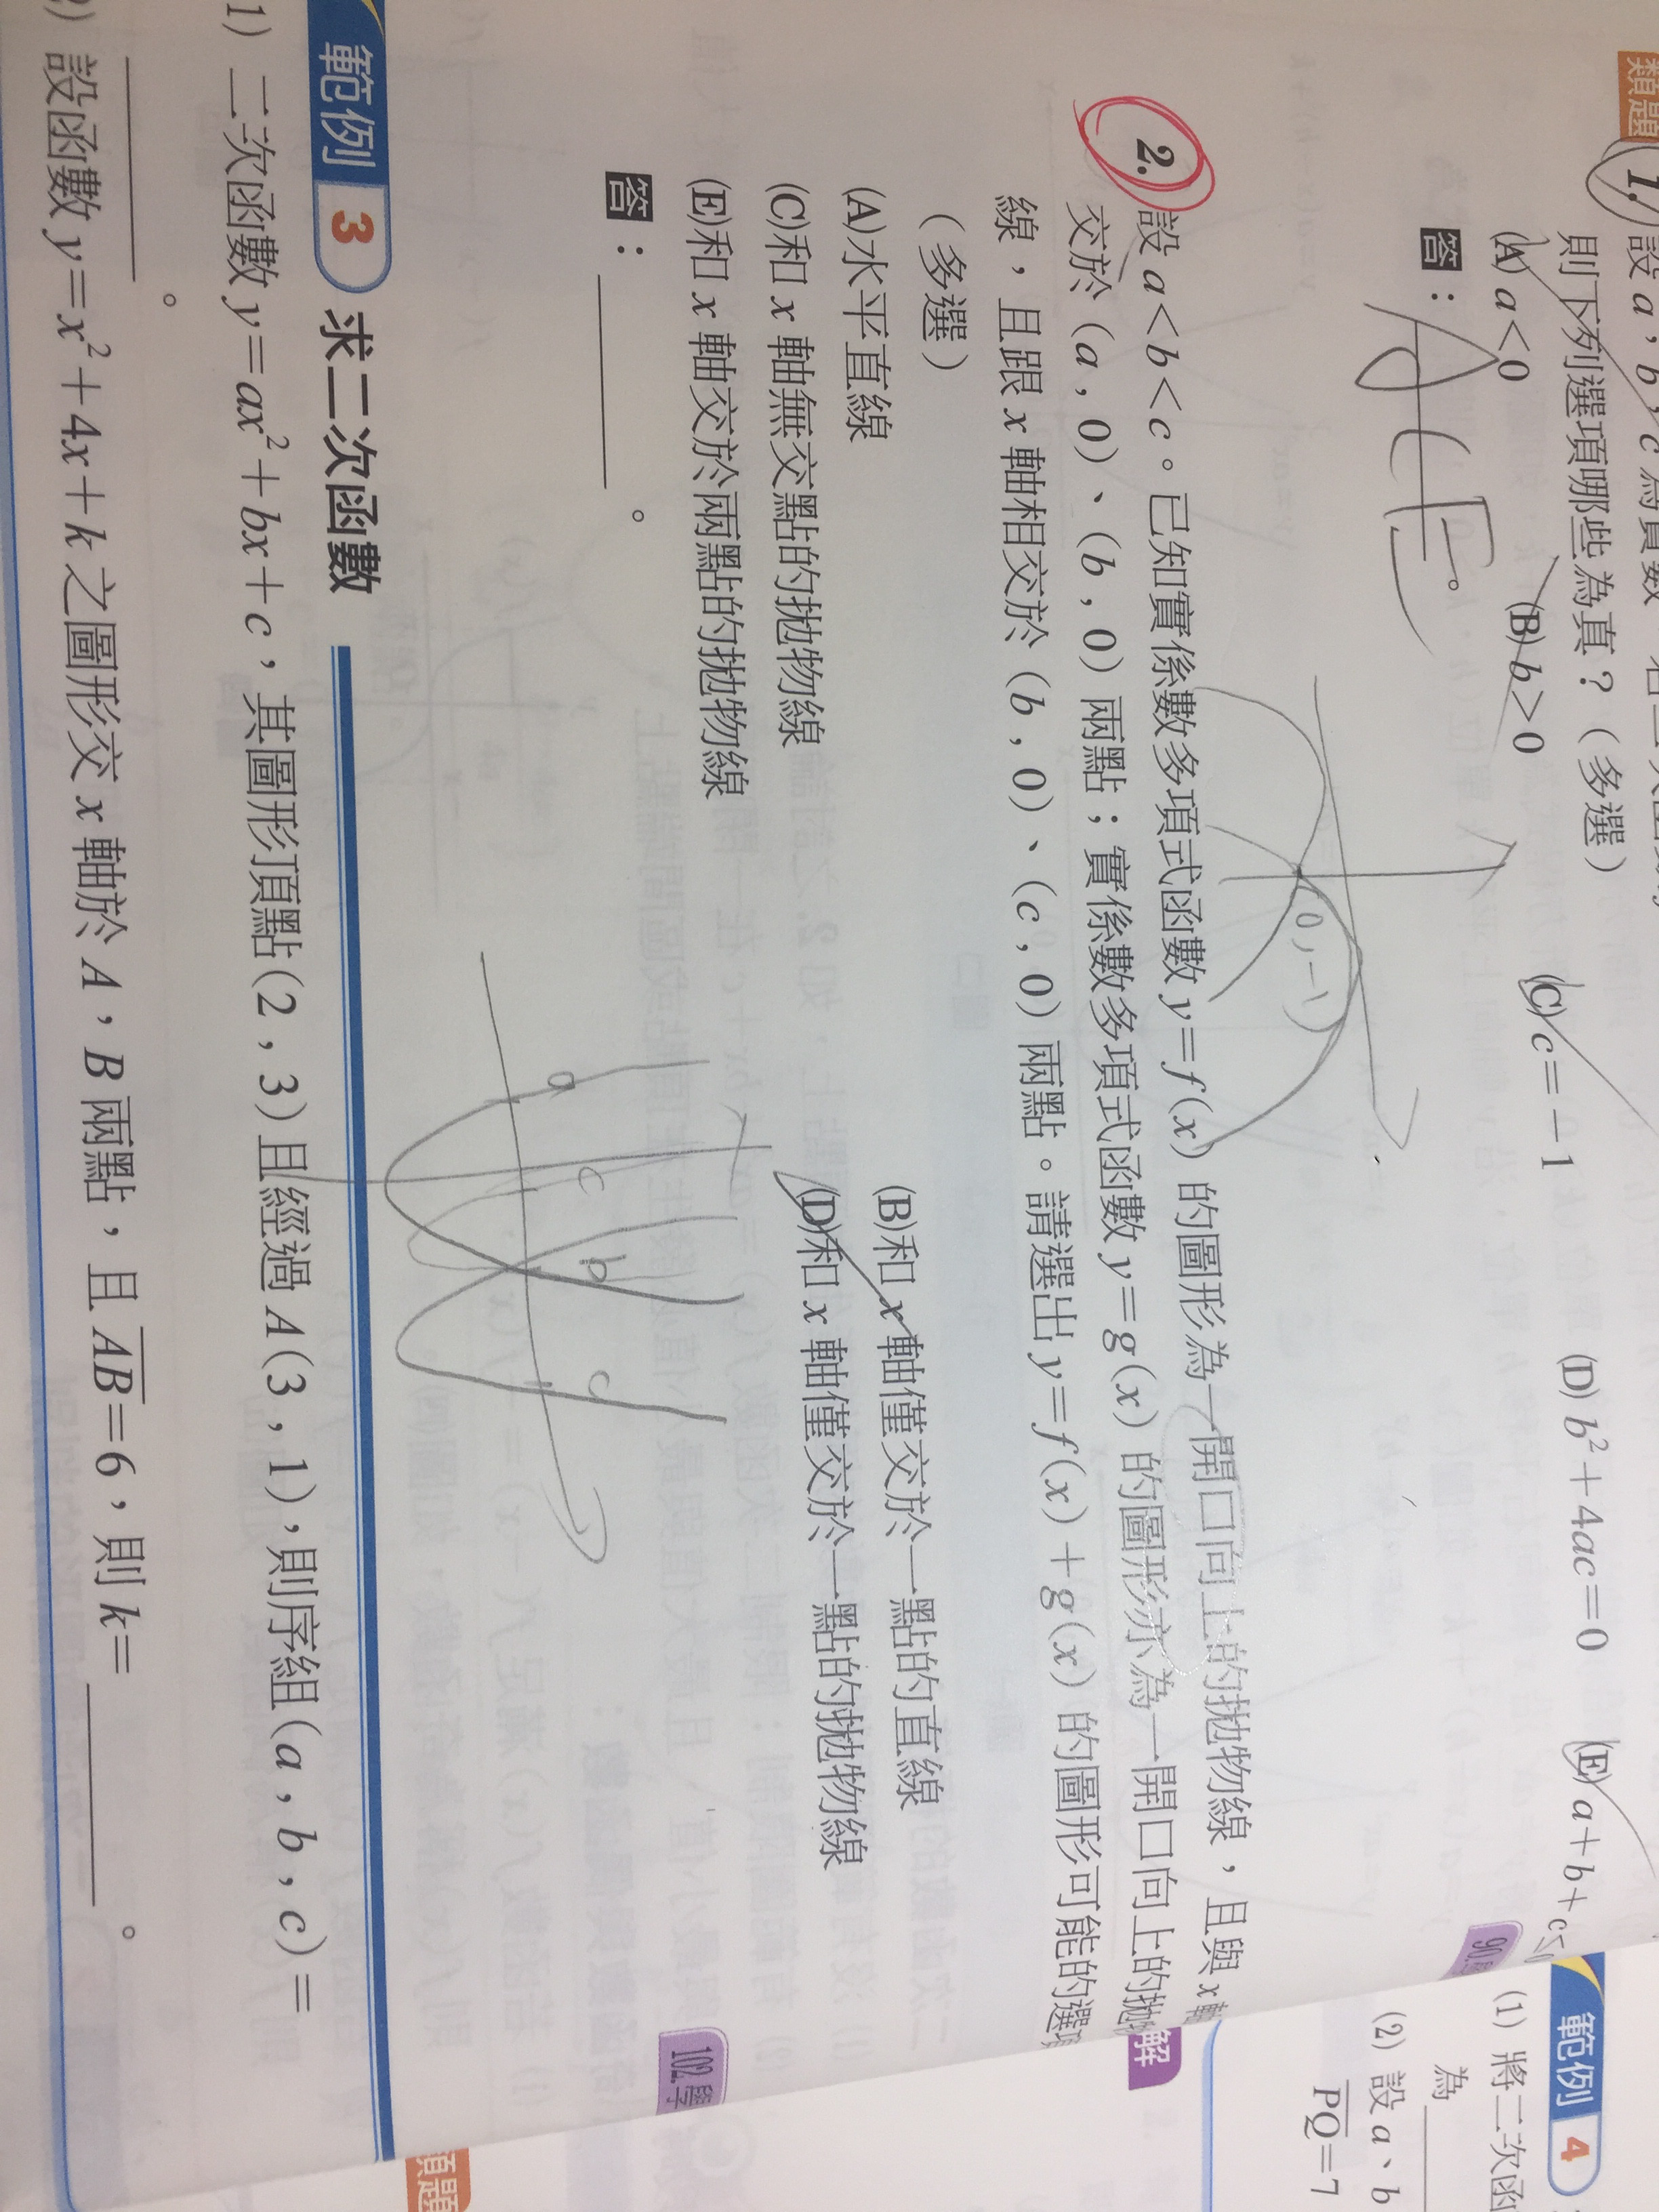 類題
1. 設 a，b，c 為實數
則下列選項哪些為真？（多選）
(A) a＜0 (B) b＞0 (C) c＝－1 (D) b²＋4ac＝0 (E) a＋b＋c≤
答：A C E。
(0,-1)
90.
2. 設 a＜b＜c。已知實係數多項式函數 y＝f(x) 的圖形為一開口向上的拋物線，且與 x 軸
交於（a，0）、（b，0）兩點；實係數多項式函數 y＝g(x) 的圖形亦為一開口向上的拋物
線，且跟 x 軸相交於（b，0）、（c，0）兩點。請選出 y＝f(x)＋g(x) 的圖形可能的選項
（多選）
(A)水平直線 (B)和 x 軸僅交於一點的直線
(C)和 x 軸無交點的拋物線 (D)和 x 軸僅交於一點的拋物線
(E)和 x 軸交於兩點的拋物線
102.學
答：。
a c b c
範例 3 求二次函數
1) 二次函數 y＝ax²＋bx＋c，其圖形頂點(2，3)且經過 A(3，1)，則序組(a，b，c)＝
。
2) 設函數 y＝x²＋4x＋k 之圖形交 x 軸於 A，B 兩點，且 AB＝6，則 k＝ 。
範例 4
(1) 將二次函
為
(2) 設 a、b
PQ＝7
解
類題